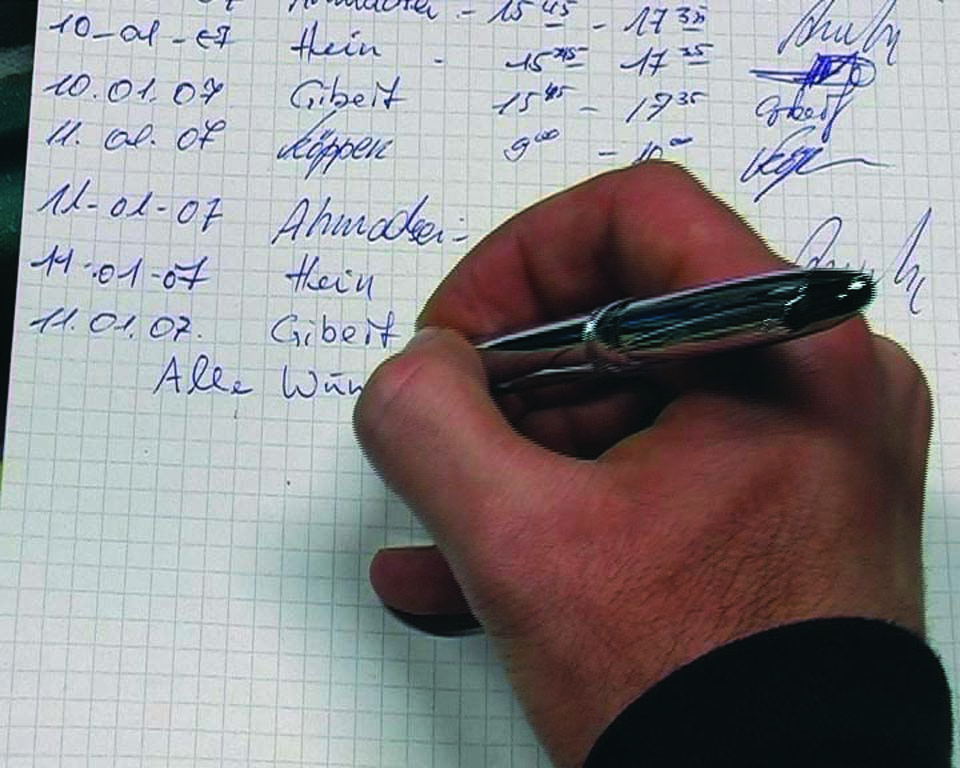 07 Ahmadsei - 15 45 - 17 35
10-01-07 Hein - 15 45 17 35
10.01.07 Gibert 15 45 - 17 35 Gibert
11.01.07 Köppen 9 00 - 10 00
11-01-07 Ahmadsei -
11-01-07 Hein
11.01.07. Gibert
Alle Wün